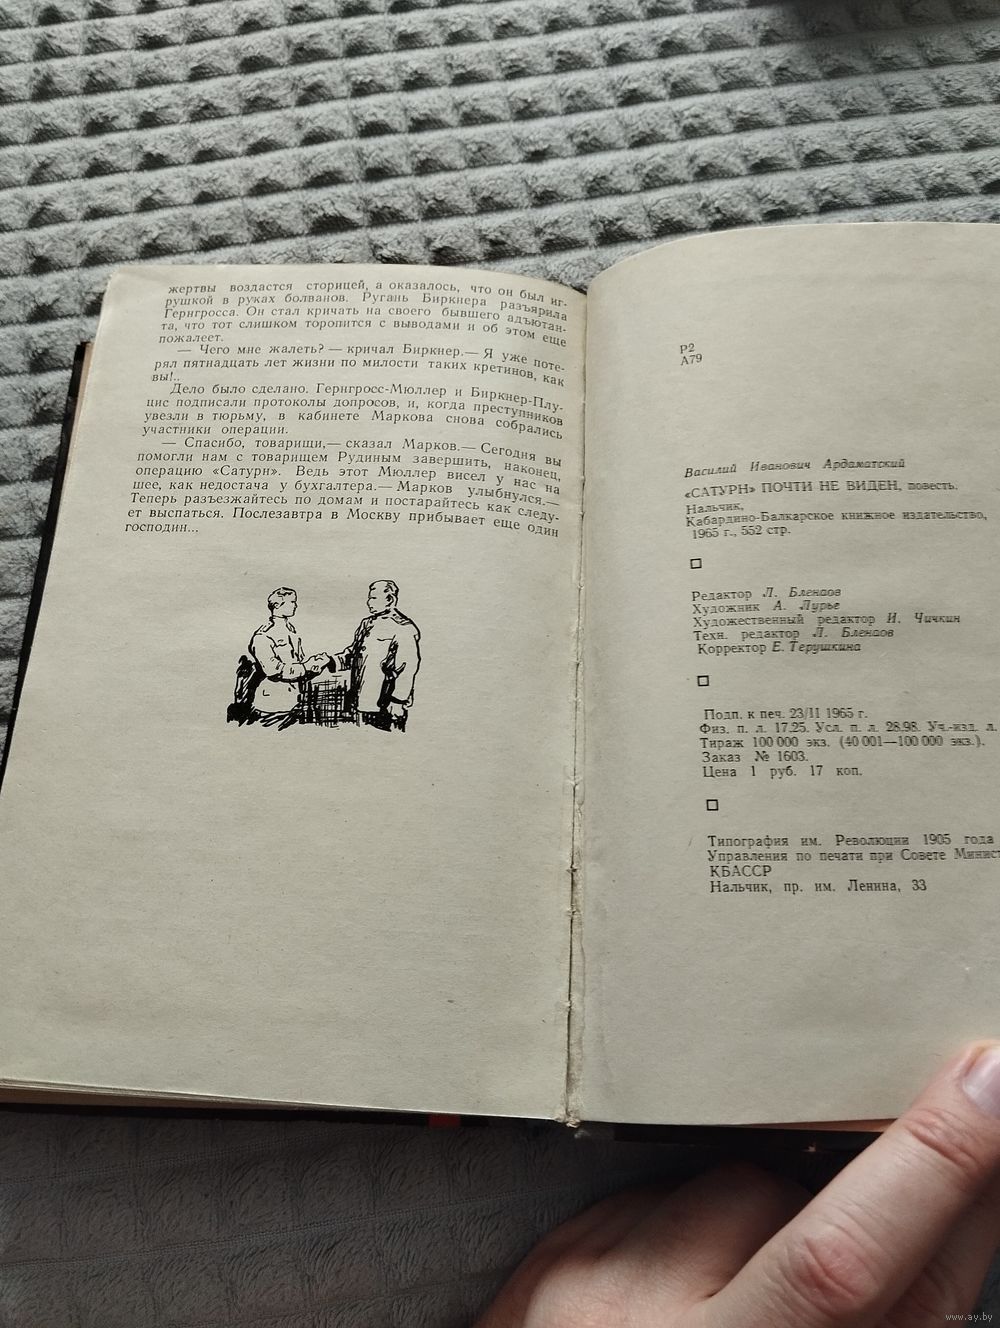 жертвы воздастся сторицей, а оказалось, что он был иг-
рушкой в руках болванов. Ругань Биркнера разъярила
Гернгросса. Он стал кричать на своего бывшего адъютан-
та, что тот слишком торопится с выводами и об этом еще
пожалеет.
— Чего мне жалеть? — кричал Биркнер.— Я уже поте-
рял пятнадцать лет жизни по милости таких кретинов, как
вы!..
Дело было сделано. Гернгросс-Мюллер и Биркнер-Плу-
цис подписали протоколы допросов, и, когда преступников
увезли в тюрьму, в кабинете Маркова снова собрались
участники операции.
— Спасибо, товарищи,— сказал Марков.— Сегодня вы
помогли нам с товарищем Рудиным завершить, наконец,
операцию «Сатурн». Ведь этот Мюллер висел у нас на
шее, как недостача у бухгалтера.— Марков улыбнулся.—
Теперь разъезжайтесь по домам и постарайтесь как следу-
ет выспаться. Послезавтра в Москву прибывает еще один
господин...
Р2
А79
Василий Иванович Ардаматский
«САТУРН» ПОЧТИ НЕ ВИДЕН, повесть.
Нальчик,
Кабардино-Балкарское книжное издательство,
1965 г., 552 стр.
Редактор Л. Блендов
Художник А. Лурье
Художественный редактор И. Чичкин
Техн. редактор Л. Блендов
Корректор Е. Терушкина
Подп. к печ. 23/II 1965 г.
Физ. п. л. 17.25. Усл. п. л. 28.98. Уч.-изд. л.
Тираж 100 000 экз. (40 001—100 000 экз.).
Заказ № 1603.
Цена 1 руб. 17 коп.
Типография им. Революции 1905 года
Управления по печати при Совете Минист
КБАССР
Нальчик, пр. им. Ленина, 33
www.ay.by